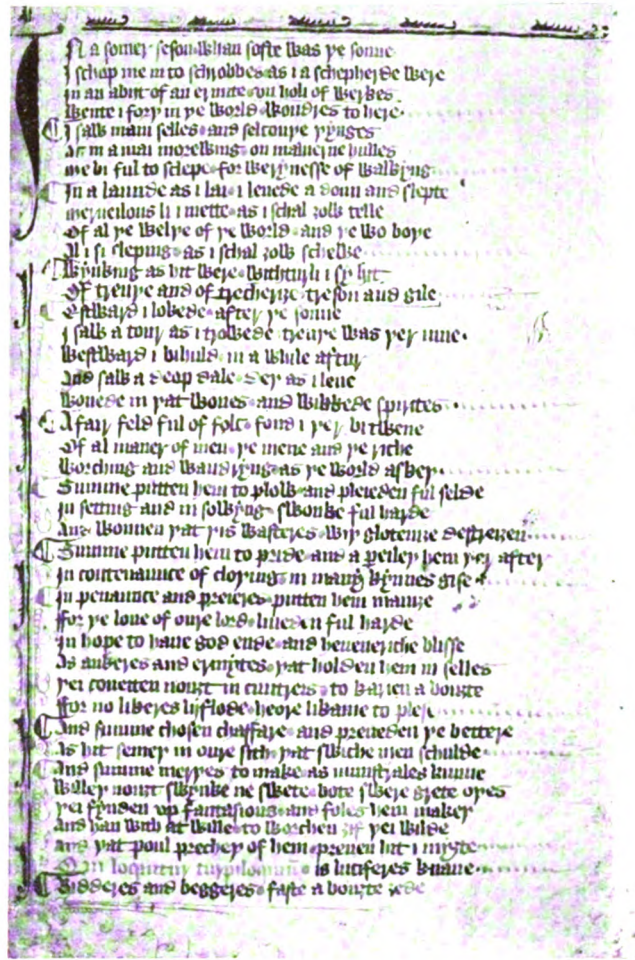 In a somer seson whan softe was þe sonne
I schop me in to schrobbes as i a schepherde were
In an abiit of an ermite vn holi of werkes
Wente i forþ in þe world wondres to here
I saw mani selles and selcouþe þynges
As in a mai morewning on maluerne hulles
me bi ful to slepe for werynesse of walkyng
In a launde as i lai i lenede a doun and slepte
merueilous li i mette as i schal ȝow telle
Of al þe welþe of þe world and þe wo boþe
Al i si sleping as i schal ȝow schewe
Wynking as hit were witturli i sy hit
Of treuþe and of trecherie treson and gile
Estward i lokede after þe sonne
I saw a tour as i trowede treuþe was þer inne
Westward i bihuld in a while aftur
And saw a deop dale der as i leue
Wonede in þat wones and wikkede spirites
A fair feld ful of folk fond i þer bi twene
Of al maner of men þe mene and þe riche
Worching and wandryng as þe world askeþ
Summe putten hem to plow and pleieden ful selde
In setting and in sowyng swonke ful harde
And wonnen þat þis wasteres wiþ glotenie destreien
Summe putten hem to pride and a peiled hem þer after
In contenaunce of cloþing in many kynnes gise
In penaunce and preieres putten hem manie
For þe loue of oure lord liueden ful harde
In hope to haue god ende and heueneriche blisse
As ankeres and ermytes þat holden hem in selles
Þei coueiten nouȝt in cuntreis to karien a boute
For no likeres liflode heore likame to plese
And summe chosen chaffare and preueden þe bettere
As hit semeþ in oure siht þat swiche men schulde
And summe merþes to make as munstrales kunne
Willeþ nouȝt swynke ne swete bote swere grete oþes
Þei fynden vp fantasious and foles hem makeþ
And han wit at wille to worchen ȝif þei wilde
and þat poul precheþ of hem preuen hit i myȝte
Qui loquitur turpiloquium is luciferes knaue
Bidderes and beggeres faste a boute ȝede